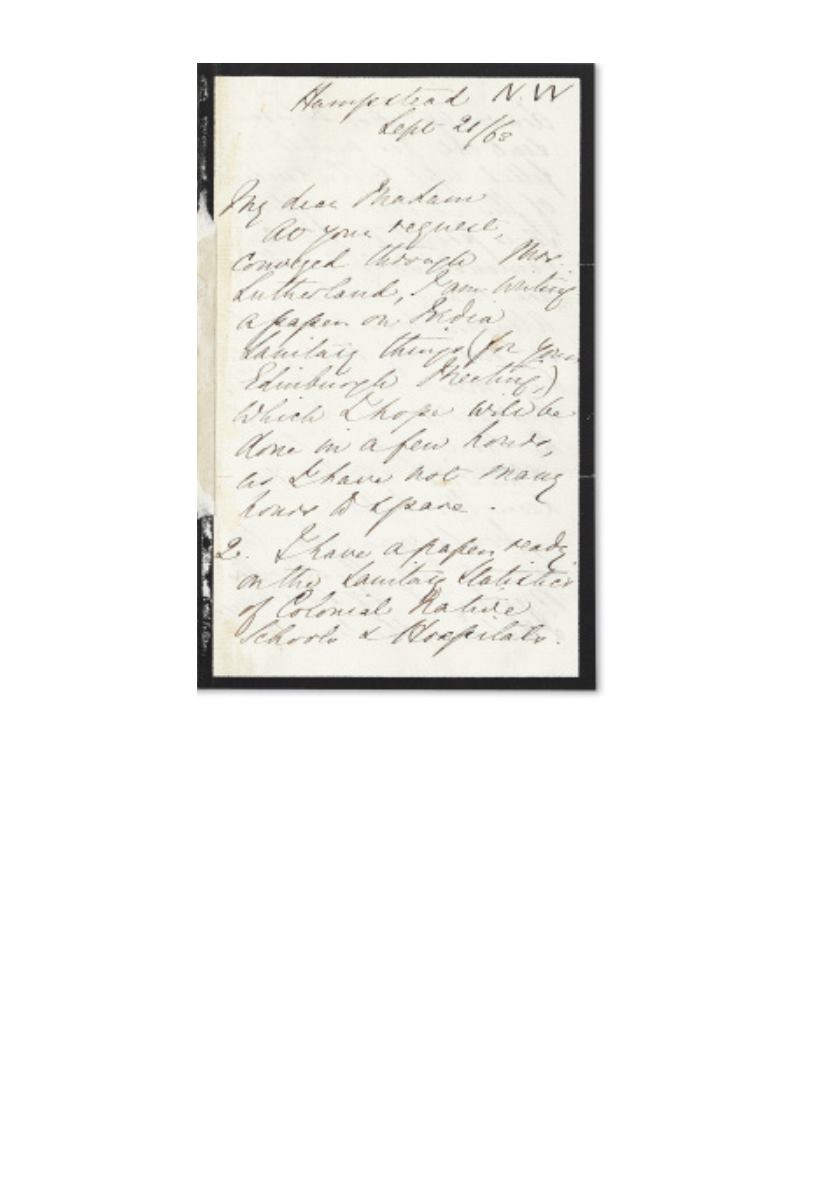 Hampstead N.W
Sept 21/63
My dear Madam
At your request,
conveyed through Mrs.
Sutherland, I am writing
a paper on India
Sanitary things (for your
Edinburgh Meeting,)
which I hope will be
done in a few hours,
as I have not many
hours to spare.
2. I have a paper ready
on the Sanitary Statistics
of Colonial Native
Schools & Hospitals.